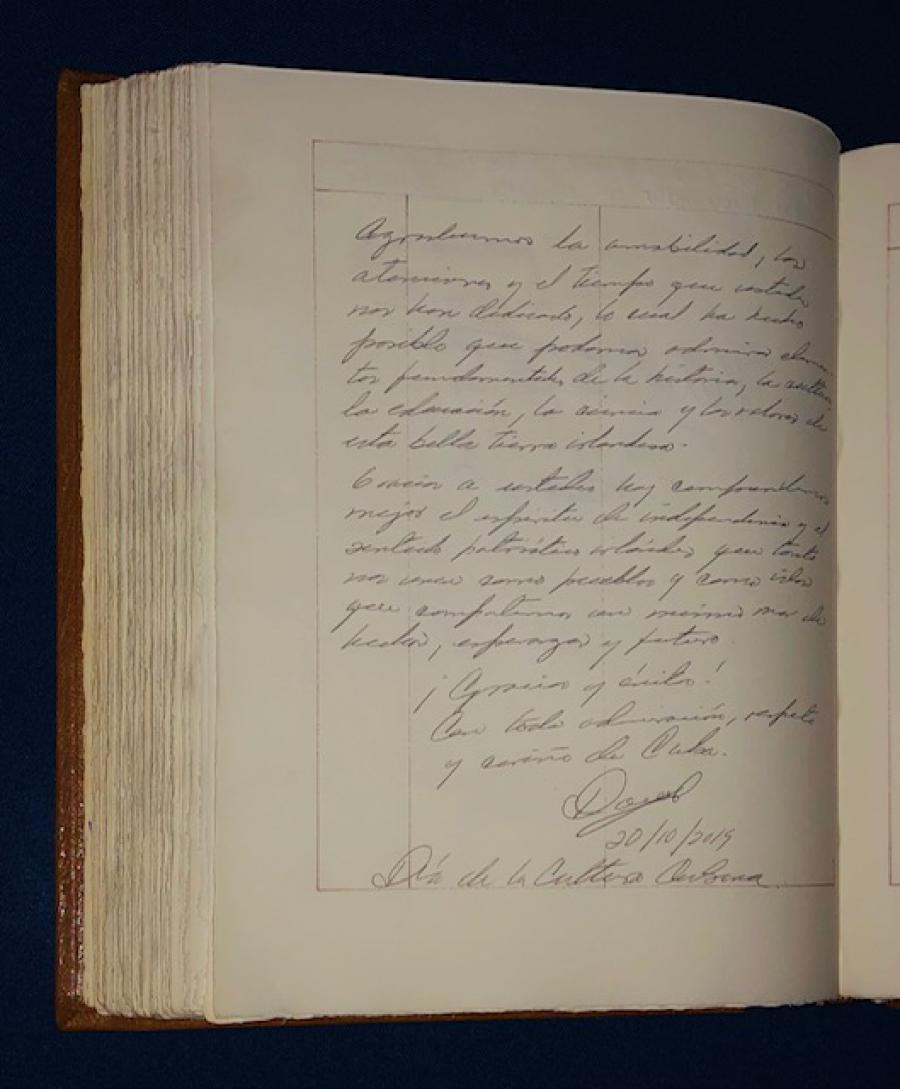 Agradecemos la amabilidad, las
atenciones y el tiempo que ustedes
nos han dedicado, lo cual ha hecho
posible que podamos admirar elemen-
tos fundamentales de la historia, la cultura,
la educación, la ciencia y los valores de
esta bella tierra irlandesa.
Gracias a ustedes hoy comprendemos
mejor el espíritu de independencia y el
sentido patriótico irlandés que tanto
nos unen como pueblos y como islas
que compartimos un mismo mar de
luchas, esperanzas y futuro.
¡Gracias y éxitos!
Con toda admiración, respeto
y cariño de Cuba.
20/10/2019
Día de la Cultura Cubana.